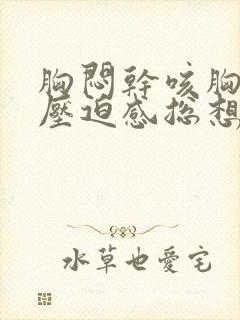 胸悶幹咳胸
壓迫感總想
水草也愛宅